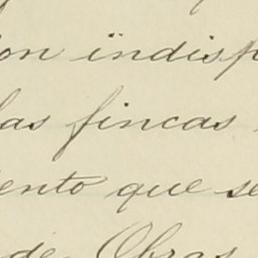 ion indisp
las fincas
ento que se
de Obras